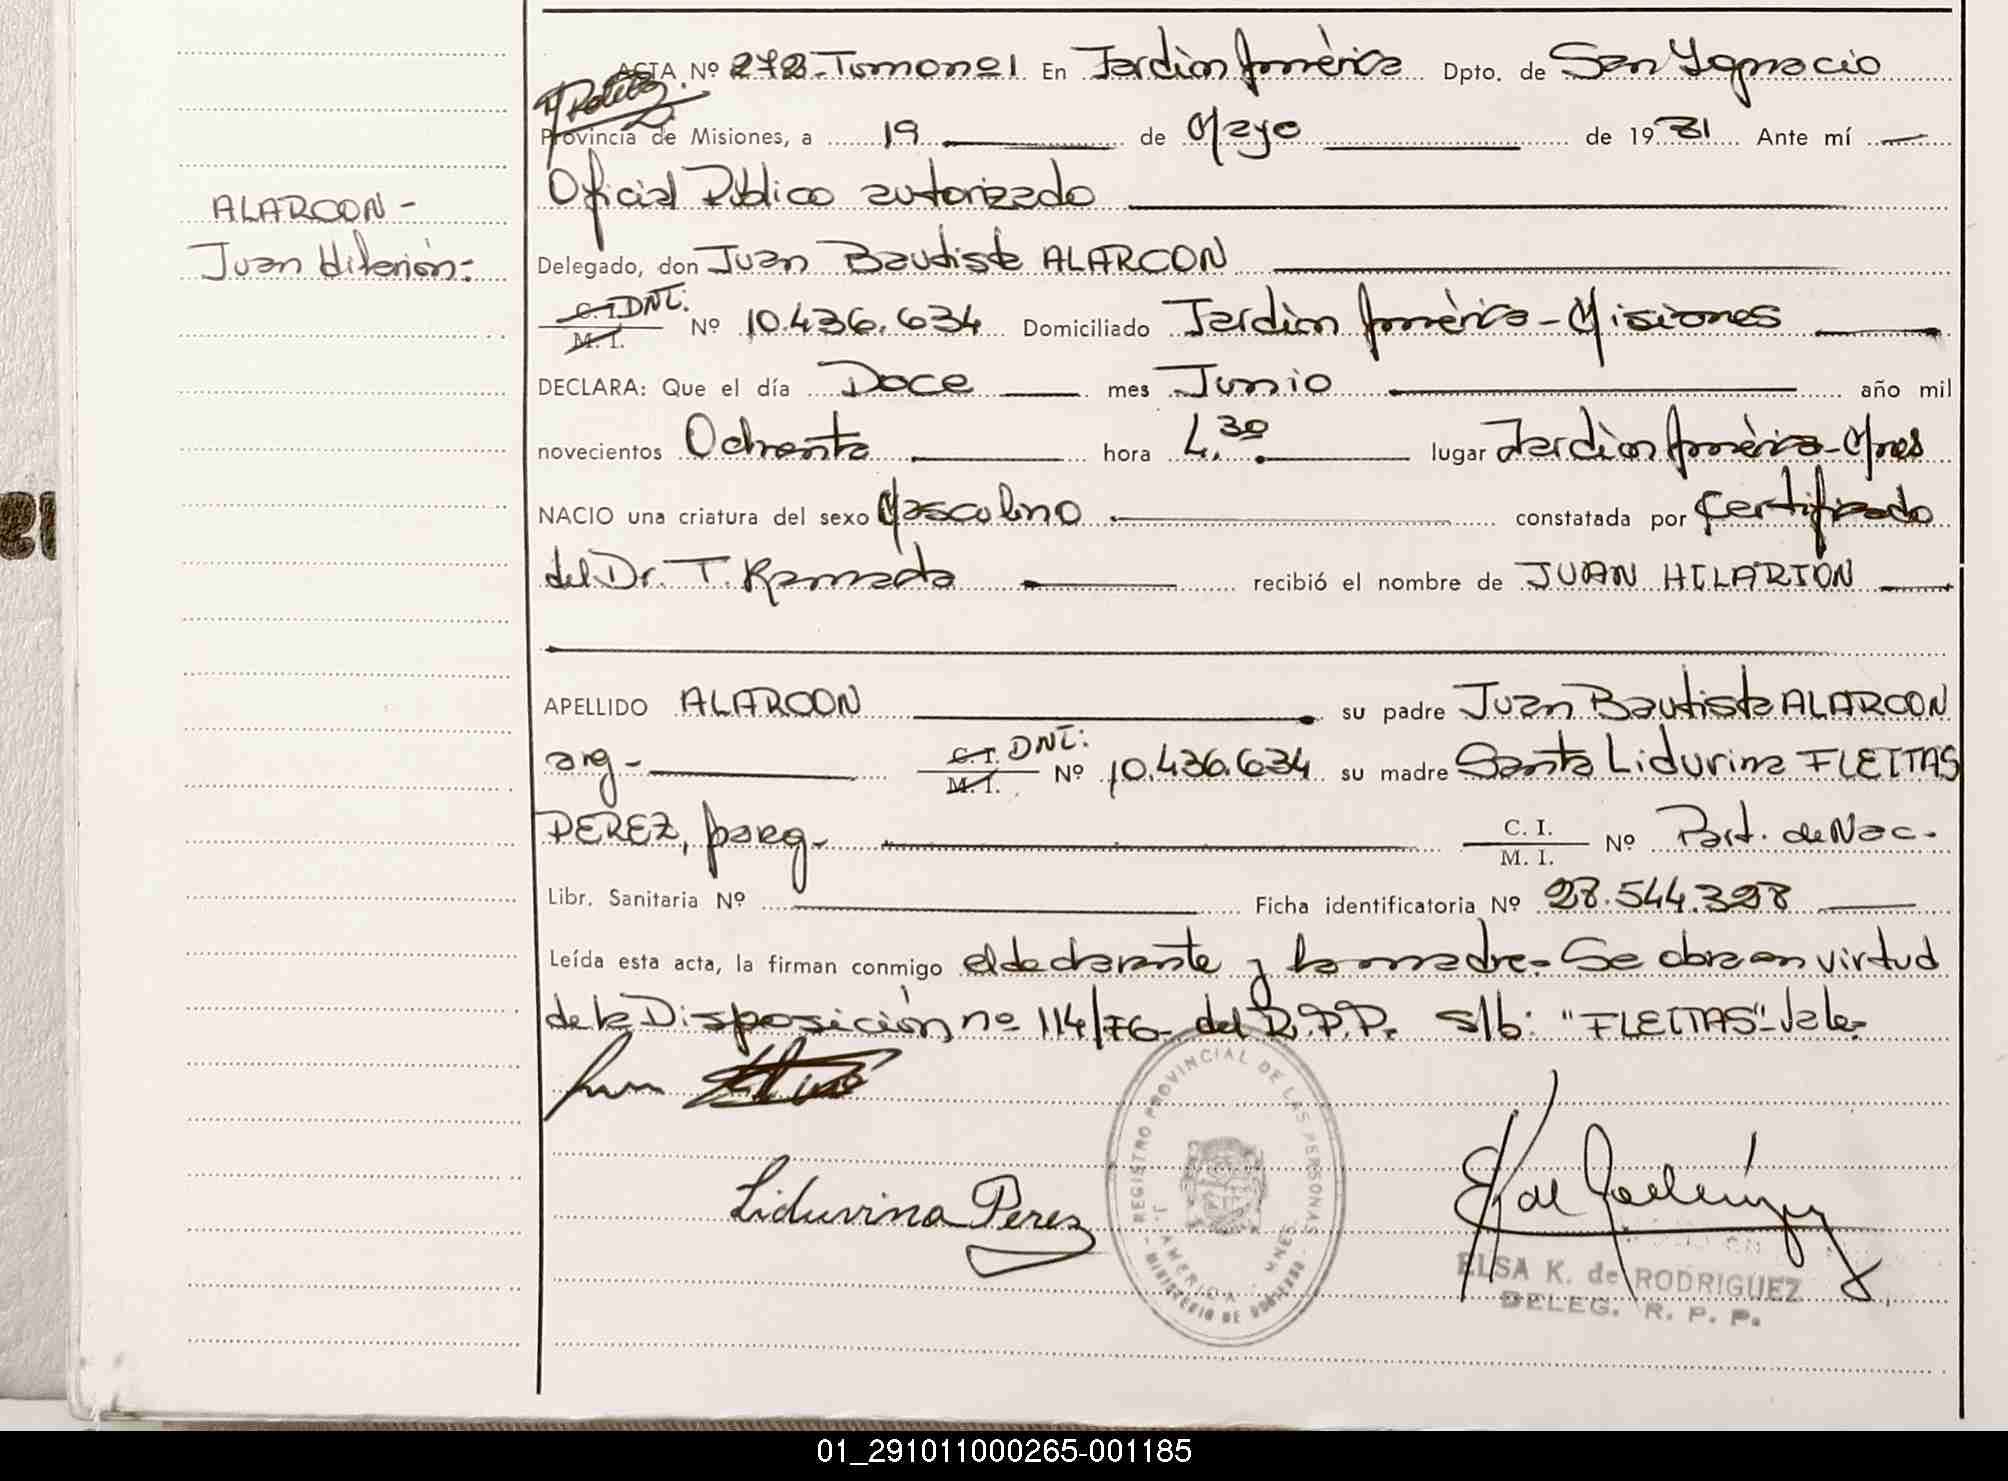 ACTA Nº 272 - Tomo nº 1 En Jardín América Dpto. de San Ygnacio
Provincia de Misiones, a 19 de Mayo de 1981 Ante mí
Oficial Público autorizado
ALARCON -
Juan Hilarión:
Delegado, don Juan Bautista ALARCON
C. I. DNI:
M. I. Nº 10.436.634 Domiciliado Jardín América - Misiones
DECLARA: Que el día Doce mes Junio año mil
novecientos Ochenta hora 4.30 lugar Jardín América - Mnes
NACIO una criatura del sexo Masculino constatada por Certificado
del Dr. T. Ramada recibió el nombre de JUAN HILARION
APELLIDO ALARCON su padre Juan Bautista ALARCON
arg - C. I. DNI:
M. I. Nº 10.436.634 su madre Santa Lidurina FLEITAS
PEREZ, parag - C. I.
M. I. Nº Part. de Nac.
Libr. Sanitaria Nº Ficha identificatoria Nº 28.544.328
Leída esta acta, la firman conmigo el declarante y la madre. Se obra en virtud
de la Disposición nº 114/76 - del R.P.P. s/b: "FLEITAS" - Vale.
Liduvina Perez
REGISTRO PROVINCIAL DE LAS PERSONAS
J. AMERICA - MNES.
MINISTERIO DE GOBIERNO
ELSA K. de RODRIGUEZ
DELEG. R. P. P.
01_291011000265-001185